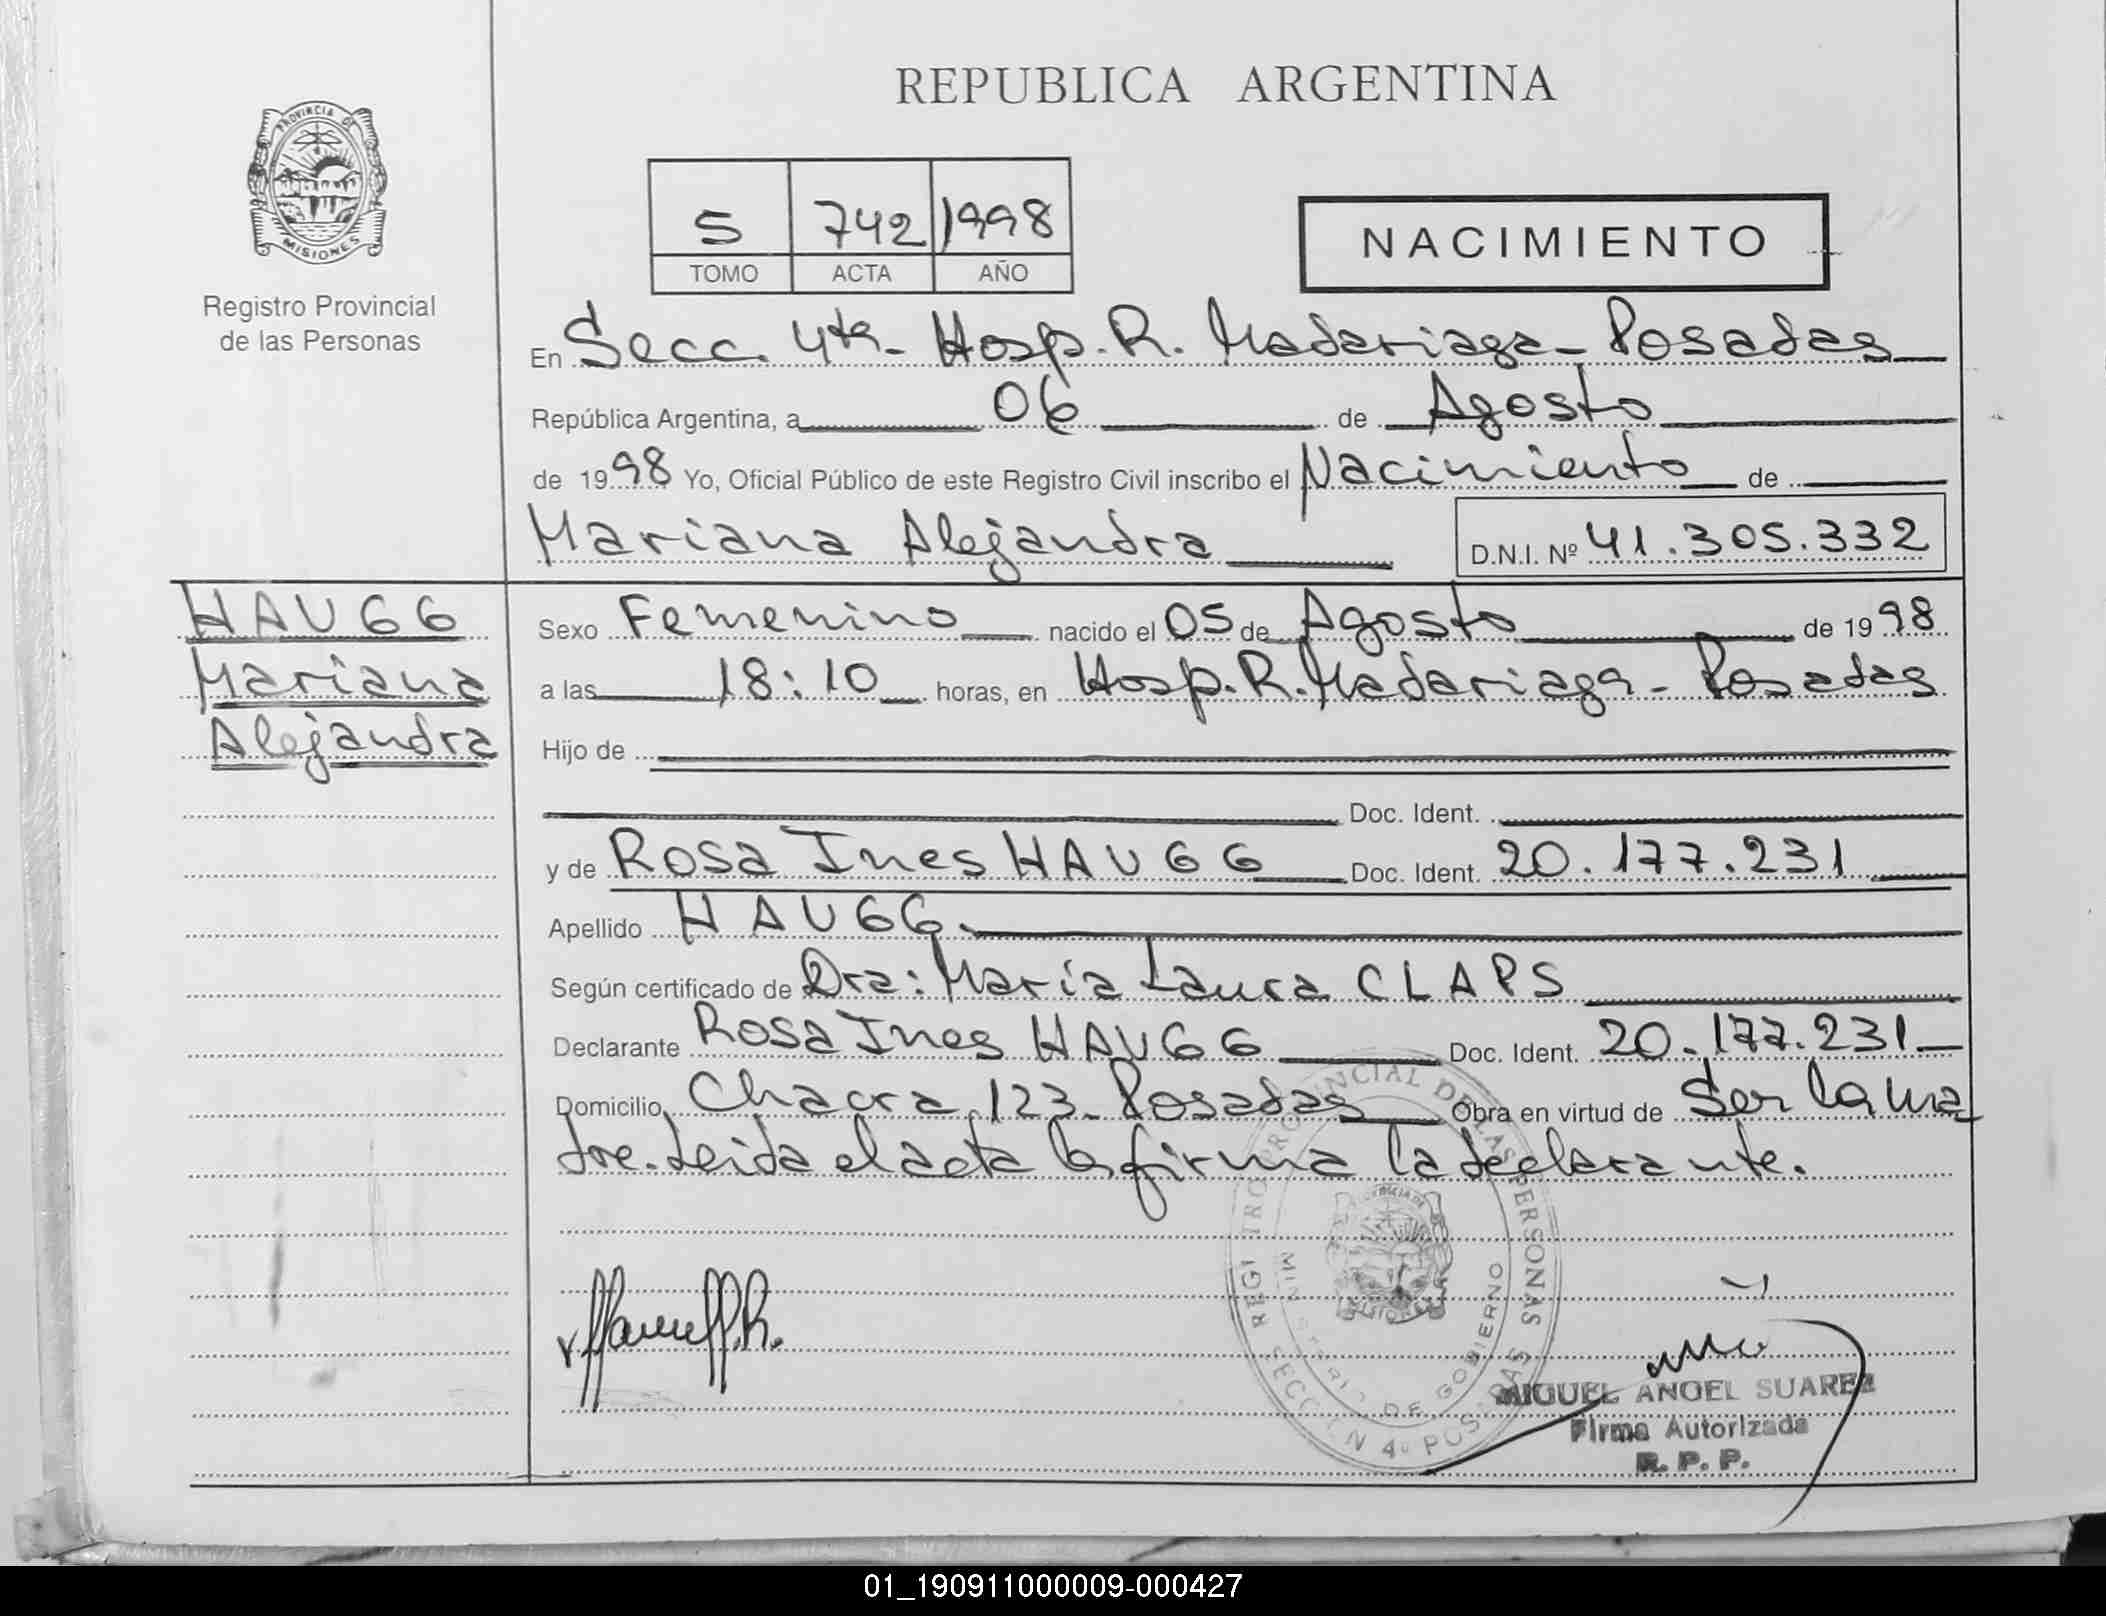 REPUBLICA ARGENTINA
PROVINCIA DE
MISIONES
Registro Provincial
de las Personas
5 742 1998
TOMO ACTA AÑO
NACIMIENTO
En Secc. 4ta- Hosp. R. Madariaga - Posadas
República Argentina, a 06 de Agosto
de 1998 Yo, Oficial Público de este Registro Civil inscribo el Nacimiento de
Mariana Alejandra D.N.I. Nº 41.305.332
HAUGG
Mariana
Alejandra
Sexo Femenino nacido el 05 de Agosto de 1998
a las 18:10 horas, en Hosp. R. Madariaga - Posadas
Hijo de
Doc. Ident.
y de Rosa Ines HAUGG Doc. Ident. 20.177.231
Apellido HAUGG.
Según certificado de Dra: María Laura CLAPS
Declarante Rosa Ines HAUGG Doc. Ident. 20.177.231
Domicilio Chacra 123- Posadas Obra en virtud de Ser la ma
dre. Leida el acta la firma la declarante.
REGISTRO PROVINCIAL DE LAS PERSONAS
MINISTERIO DE GOBIERNO
SECCION 4º POSADAS
MISIONES
MIGUEL ANGEL SUAREZ
Firma Autorizada
R. P. P.
01_190911000009-000427